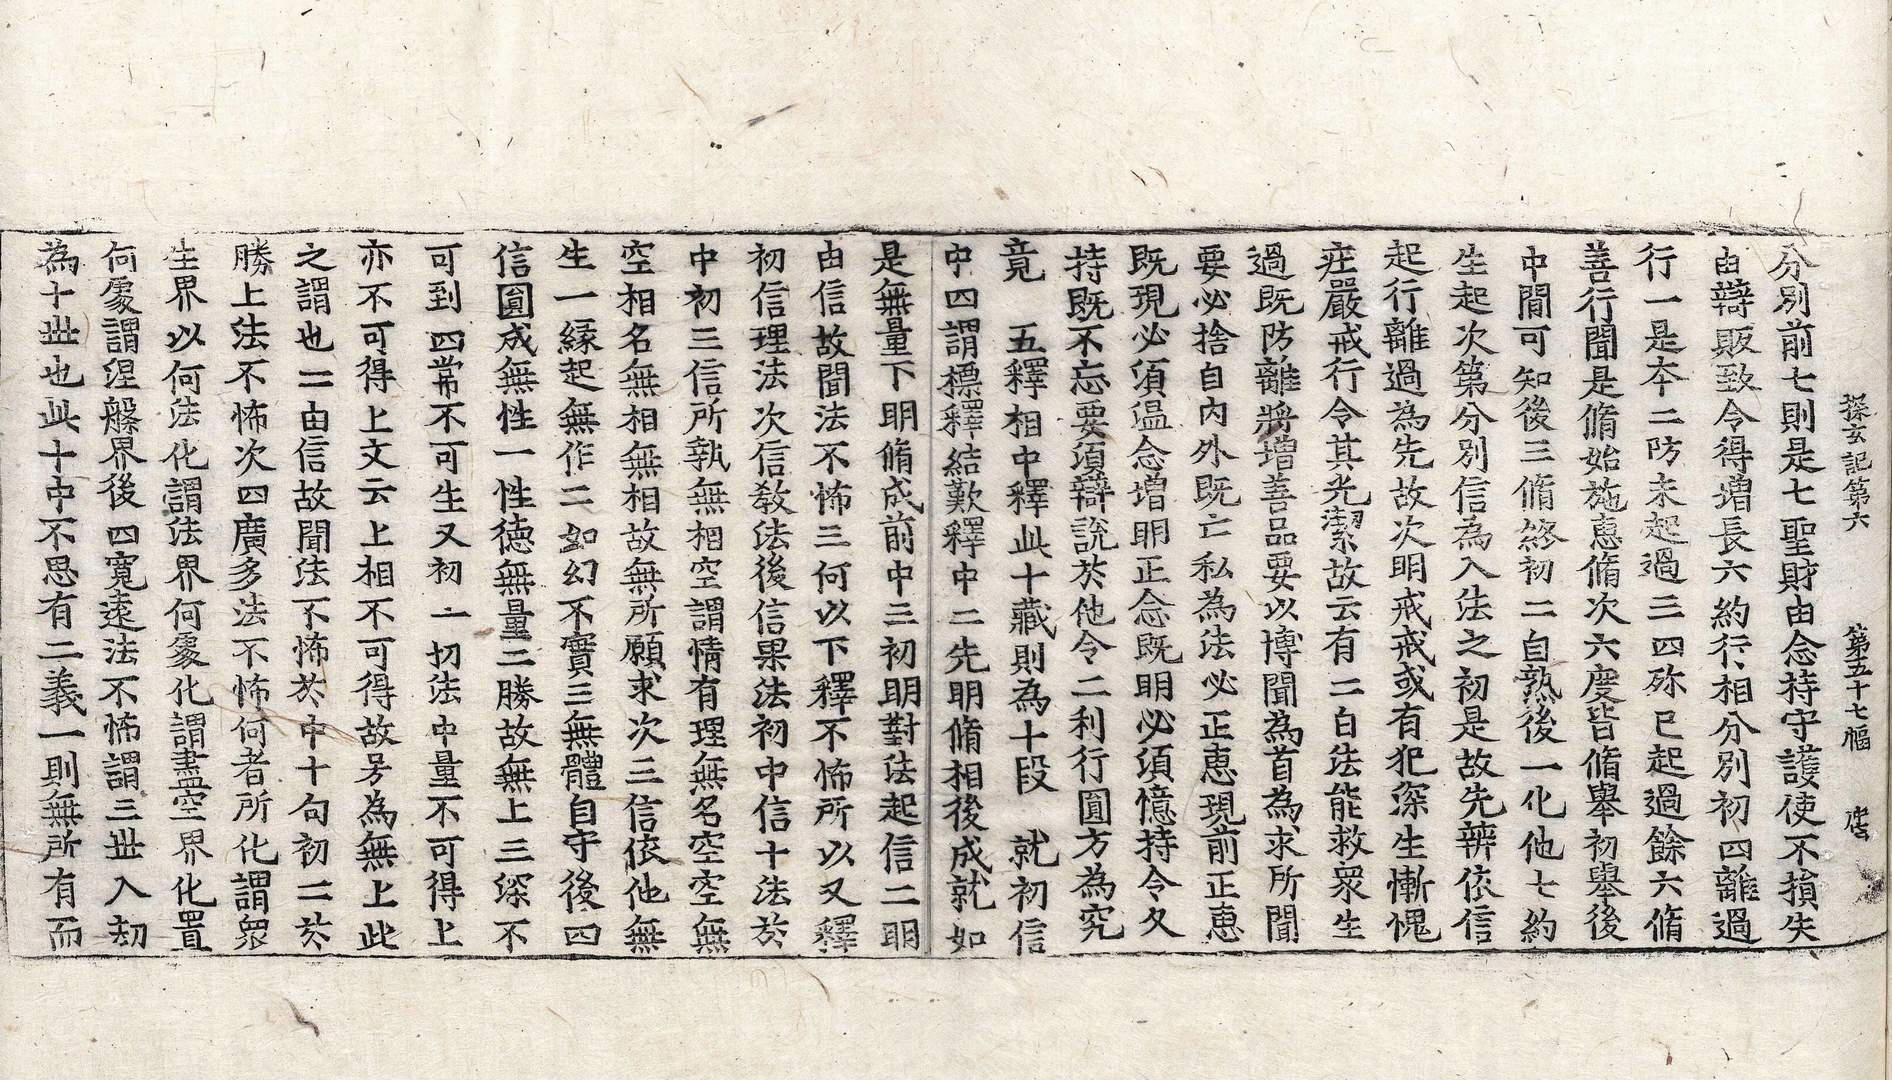 探玄記第六　第五十七幅　虗
分別前七則是七聖財由念持守護使不損失
由辯販致令得增長六約行相分別初四離過
行一是夲二防未起過三四殄已起過餘六脩
善行聞是脩始施惠脩次六度皆脩舉初舉後
中間可知後三脩終初二自熟後一化他七約
生起次第分別信為入法之初是故先辨依信
起行離過為先故次明戒戒或有犯深生慚愧
庄嚴戒行令其光潔故云有二白法能救衆生
過既防離將增善品要以博聞為首為求所聞
要必捨自內外既亡私為法必正惠現前正惠
既現必須温念增明正念既明必須憶持令久
持既不忘要須辯說於他令二利行圓方為究
竟　五釋相中釋此十藏則為十段　就初信
中四謂標釋結歎釋中二先明脩相後成就如
是無量下明脩成前中三初明對法起信二明
由信故聞法不怖三何以下釋不怖所以又釋
初信理法次信教法後信果法初中信十法於
中初三信所執無相空謂情有理無名空空無
空相名無相無相故無所願求次三信依他無
生一緣起無作二如幻不實三無體自守後四
信圓成無性一性德無量二勝故無上三深不
可到四常不可生又初一切法中量不可得上
亦不可得上文云上相不可得故号為無上此
之謂也二由信故聞法不怖於中十句初二於
勝上法不怖次四廣多法不怖何者所化謂眾
生界以何法化謂法界何處化謂盡空界化置
何處謂涅槃界後四寬遠法不怖謂三世入劫
為十世也此十中不思有二義一則無所有而